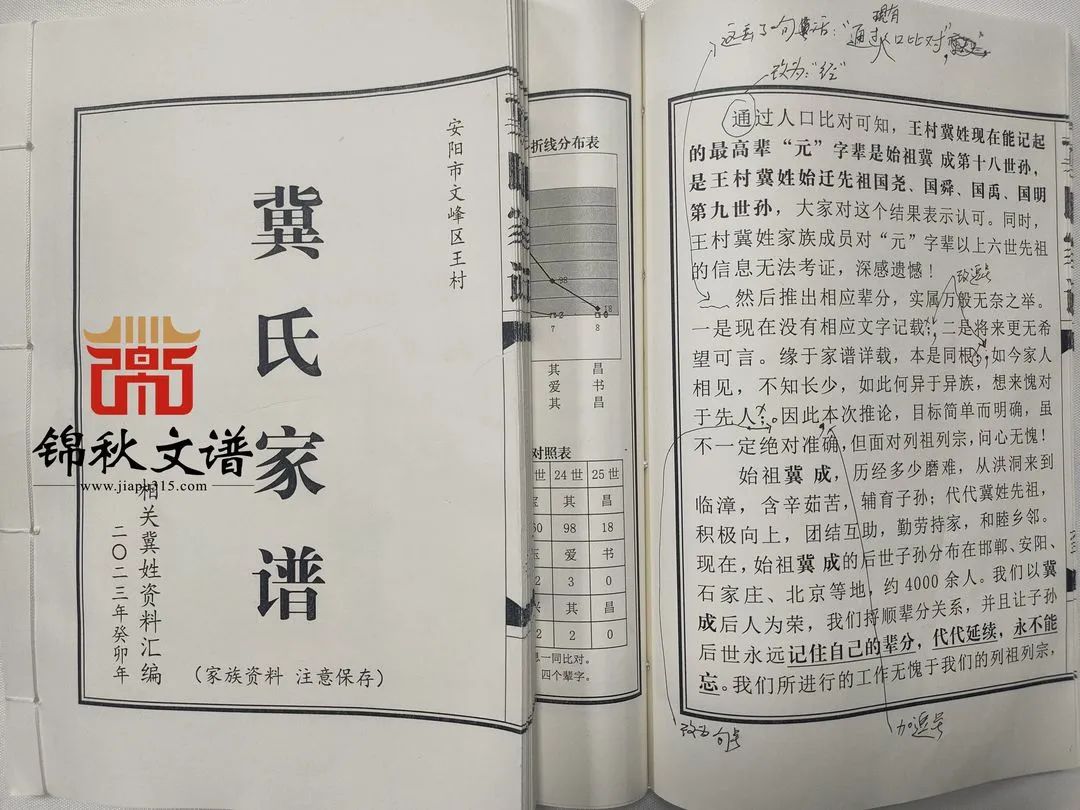 安阳市文峰区王村
冀氏家谱
相关冀姓资料汇编
二〇二三年癸卯年
(家族资料 注意保存)
锦秋文谱
www.jiapu315.com
折线分布表
98
18
2
0
7
8
其 昌
爱 书
其 昌
对照表
世 24世 25世
宝 其 昌
60 98 18
玉 爱 书
2 3 0
兴 其 昌
2 2 0
息一同比对。
四个辈字。
这丢了一句话:“通过现有人口比对”,
改为:“经”
通过人口比对可知,王村冀姓现在能记起
的最高辈“元”字辈是始祖冀 成第十八世孙,
是王村冀姓始迁先祖国尧、国舜、国禹、国明
第九世孙,大家对这个结果表示认可。同时,
王村冀姓家族成员对“元”字辈以上六世先祖
的信息无法考证,深感遗憾!
改逗号
然后推出相应辈分,实属万般无奈之举。
一是现在没有相应文字记载;二是将来更无希
望可言。缘于家谱详载,本是同根;如今家人
相见,不知长少,如此何异于异族,想来愧对
于先人。因此本次推论,目标简单而明确,虽
不一定绝对准确,但面对列祖列宗,问心无愧!
始祖冀 成,历经多少磨难,从洪洞来到
临漳,含辛茹苦,辅育子孙;代代冀姓先祖,
积极向上,团结互助,勤劳持家,和睦乡邻。
现在,始祖冀 成的后世子孙分布在邯郸、安阳、
石家庄、北京等地,约4000余人。我们以冀
成后人为荣,我们捋顺辈分关系,并且让子孙
后世永远记住自己的辈分,代代延续,永不能
忘。我们所进行的工作无愧于我们的列祖列宗,
改为句号
加逗号